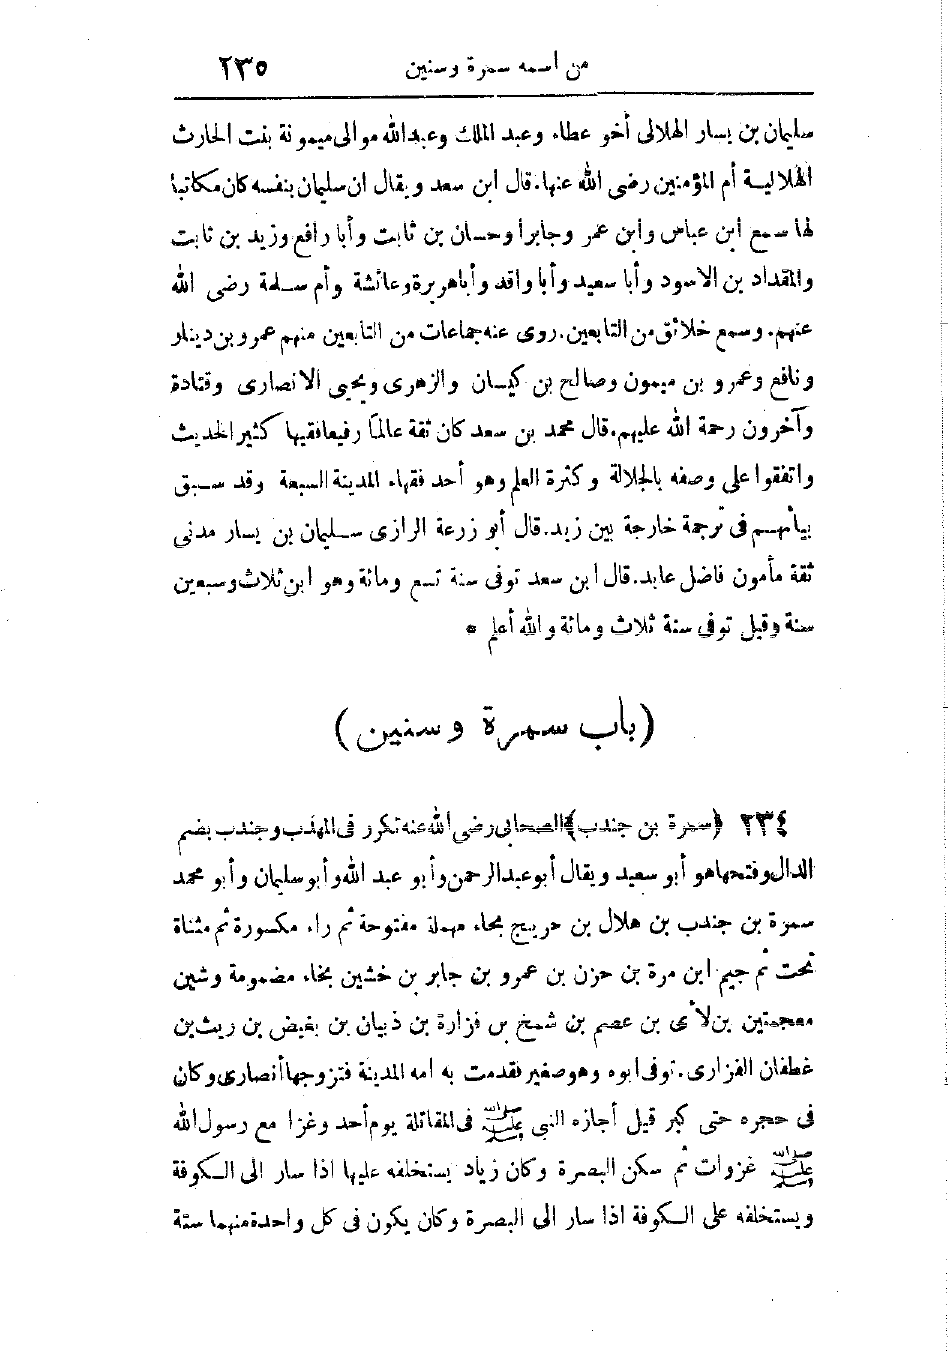 من اسمه سمرة وسنين ٢٣٥
سليمان بن يسار الهلالى أخو عطاء وعبد الملك وعبدالله موالى ميمونة بنت الحارث
الهلالية أم المؤمنين رضى الله عنها. قال ابن سعد ويقال ان سليمان بنفسه كان مكاتبا
لها سمع ابن عباس وابن عمر وجابرا وحسان بن ثابت وأبا رافع وزيد بن ثابت
والمقداد بن الاسود وأبا سعيد وأبا واقد وأباهريرة وعائشة وأم سلمة رضى الله
عنهم. وسمع خلائق من التابعين. روى عنه جماعات من التابعين منهم عمرو بن دينار
ونافع وعمرو بن ميمون وصالح بن كيسان والزهرى ويحيى الانصارى وقتادة
وآخرون رحمة الله عليهم. قال محمد بن سعد كان ثقة عالما رفيعا فقيها كثير الحديث
واتفقوا على وصفه بالجلالة وكثرة العلم وهو أحد فقهاء المدينة السبعة وقد سبق
بيانهم فى ترجمة خارجة بين زيد. قال أبو زرعة الرازى سليمان بن يسار مدنى
ثقة مأمون فاضل عابد. قال ابن سعد توفى سنة تسع ومائة وهو ابن ثلاث وسبعين
سنة وقيل توفى سنة ثلاث ومائة والله أعلم *
(باب سمرة وسنين)
٢٣٤ (سمرة بن جندب) الصحابى رضى الله عنه تكرر فى المهذب وجندب بضم
الدال وفتحها هو أبو سعيد ويقال أبو عبدالرحمن وأبو عبد الله وأبو سليمان وأبو محمد
سمرة بن جندب بن هلال بن حريج بحاء مهملة مفتوحة ثم راء مكسورة ثم مثناة
تحت ثم جيم ابن مرة بن حزن بن عمرو بن جابر بن خشين بخاء مضمومة وشين
معجمتين بن لأى بن عصم بن شمخ بن فزارة بن ذبيان بن بغيض بن ريث بن
غطفان الفزارى. توفى ابوه وهو صغير فقدمت به امه المدينة فتزوجها أنصارى وكان
فى حجره حتى كبر قيل أجازه النبى ﷺ فى المقاتلة يوم أحد وغزا مع رسول الله
ﷺ غزوات ثم سكن البصرة وكان زياد يستخلفه عليها اذا سار الى الكوفة
ويستخلفه على الكوفة اذا سار الى البصرة وكان يكون فى كل واحدة منهما ستة